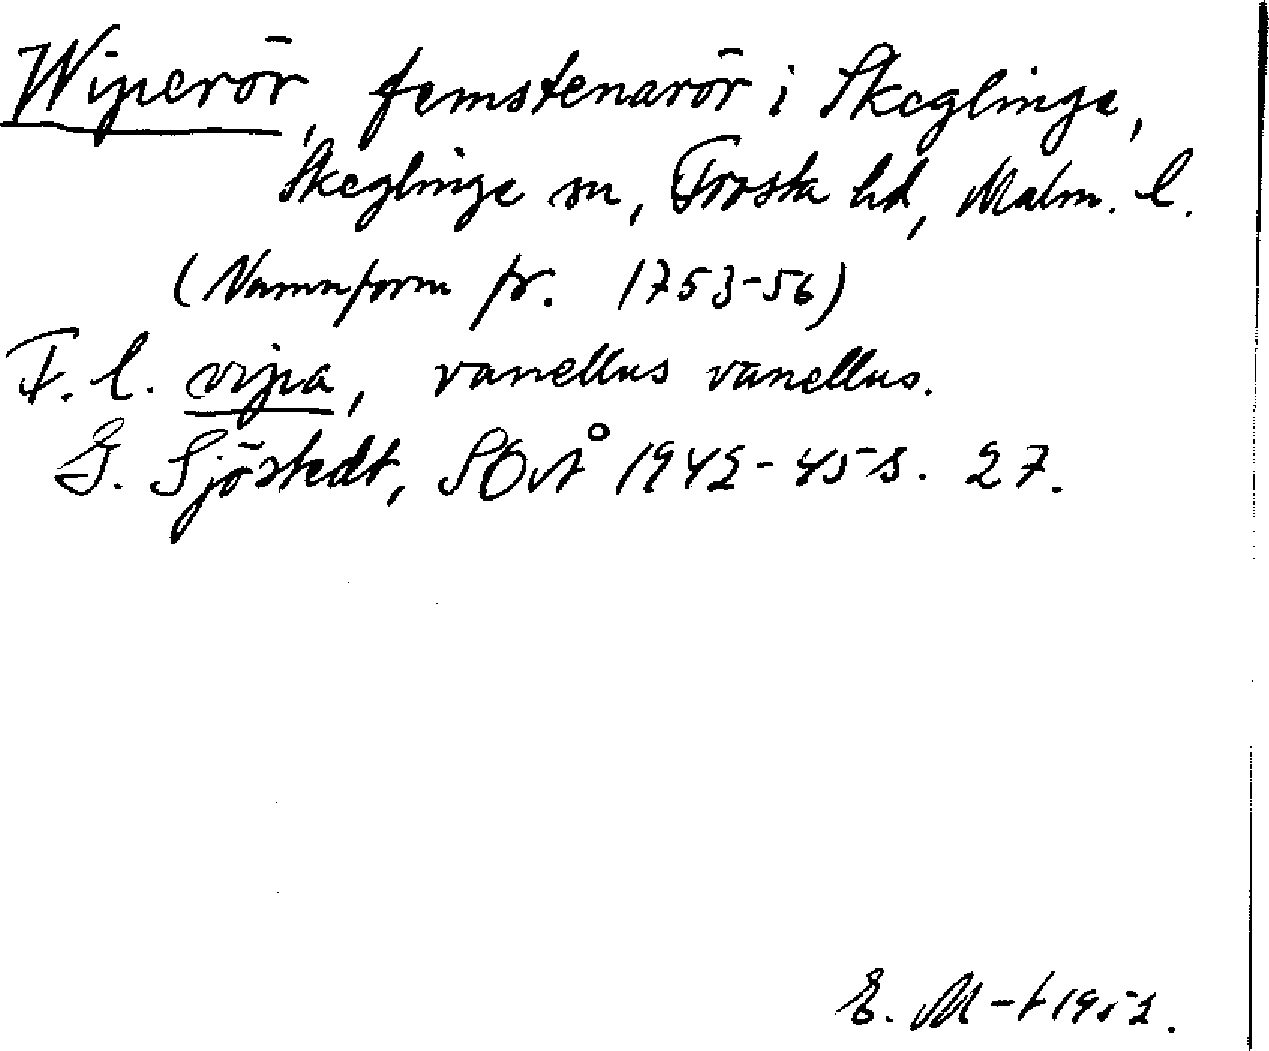 Wiperör, femstenarör i Skeglinge,
Skeglinge sn, Frosta hd, Malm. l.
(Namnform fr. 1753-56)
F. l. vipa, vanellus vanellus.
G. Sjöstedt, SOÅ 1942-45 s. 27.
E. M-t 1952.